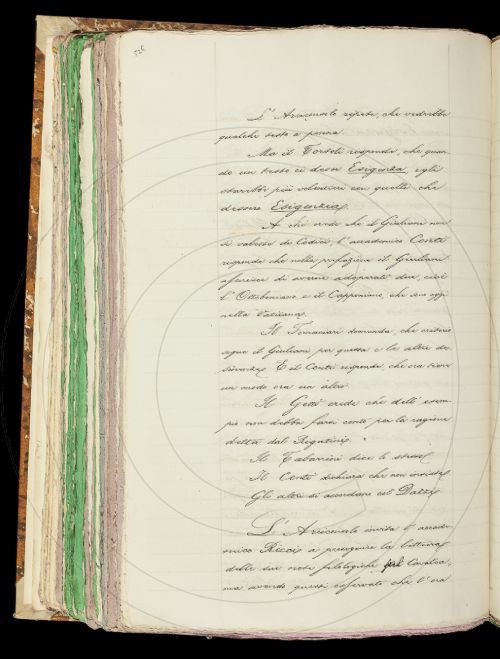 526
L' Arciconsolo ripete, che vedrebbe
qualche testo a penna.
Ma il Tortoli risponde, che quan-
do un testo ci desse Esigenza, egli
starebbe più volentieri con quelli che
dissero Esigenzia.
A chi crede che il Giuliani non
si valesse di Codici, l' accademico Conti
risponde che nella prefazione il Giuliani
afferisce di averne adoperati due, cioè
l' Ottoboniano e il Capponiano, che sono oggi
nella Vaticana.
Il domanda, che criterio
segue il Giuliani per questa e le altre de-
sinenze. E il Conti risponde, che ora tiene
un modo ora un altro.
Il Gotti crede che dell' esem-
pio non debba farsi conto per la ragione
detta dal Rigutini.
Il Tabarrini dice lo stesso.
Il Conti dichiara che non insiste.
Gli altri si accordano col Dazzi.
L' Arciconsolo invita l' accade-
mico Ricci a proseguire la lettura
delle sue note filologiche sul Cavalca,
ma avendo questi osservato che l' ora